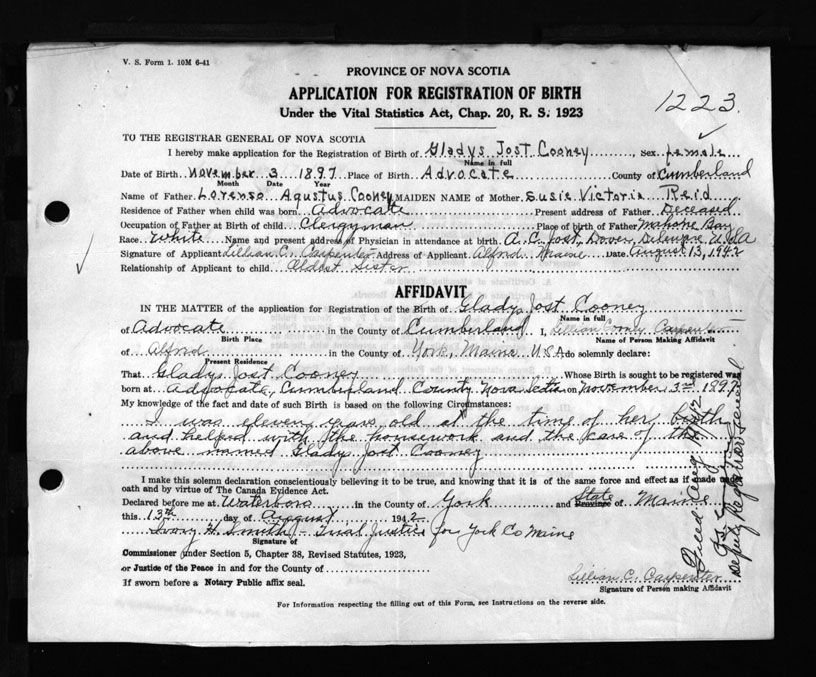 V. S. Form 1. 10M 6-41
PROVINCE OF NOVA SCOTIA
APPLICATION FOR REGISTRATION OF BIRTH
Under the Vital Statistics Act, Chap. 20, R. S. 1923
1223.
TO THE REGISTRAR GENERAL OF NOVA SCOTIA
I hereby make application for the Registration of Birth of Gladys Jost Cooney, Sex female
Name in full
Date of Birth November 3 1897 Place of Birth Advocate County of Cumberland
Month Date Year
Name of Father Lorenso Agustus Cooney MAIDEN NAME of Mother Susie Victoria Reid
Residence of Father when child was born Advocate Present address of Father Deceased
Occupation of Father at Birth of child Clergyman Place of birth of Father Mahone Bay
Race White Name and present address of Physician in attendance at birth A. C. Jost, Dover, Delaware U.S.A
Signature of Applicant Lillian C. Carpenter Address of Applicant Alfred Maine Date August 13, 1942
Relationship of Applicant to child Oldest Sister
AFFIDAVIT
IN THE MATTER of the application for Registration of the Birth of Gladys Jost Cooney
Name in full
of Advocate in the County of Cumberland I, Lillian Carpenter
Birth Place Name of Person Making Affidavit
of Alfred in the County of York, Maine USA do solemnly declare:
Present Residence
That Gladys Jost Cooney Whose Birth is sought to be registered was
born at Advocate, Cumberland County Nova Scotia on November 3rd 1897
My knowledge of the fact and date of such Birth is based on the following Circumstances:
I was eleven years old at the time of her birth
and helped with the housework and the care of the
above named Gladys Jost Cooney
I make this solemn declaration conscientiously believing it to be true, and knowing that it is of the same force and effect as if made on
oath and by virtue of The Canada Evidence Act.
Declared before me at Waterboro in the County of York State Province of Maine
this 13th day of August 1942
Ivory H. Smith - Trial Justice for York Co Maine
Signature of
Commissioner under Section 5, Chapter 38, Revised Statutes, 1923,
or Justice of the Peace in and for the County of
If sworn before a Notary Public affix seal.
Lillian C. Carpenter
Signature of Person making Affidavit
For Information respecting the filling out of this Form, see Instructions on the reverse side.
Deputy Registrar General